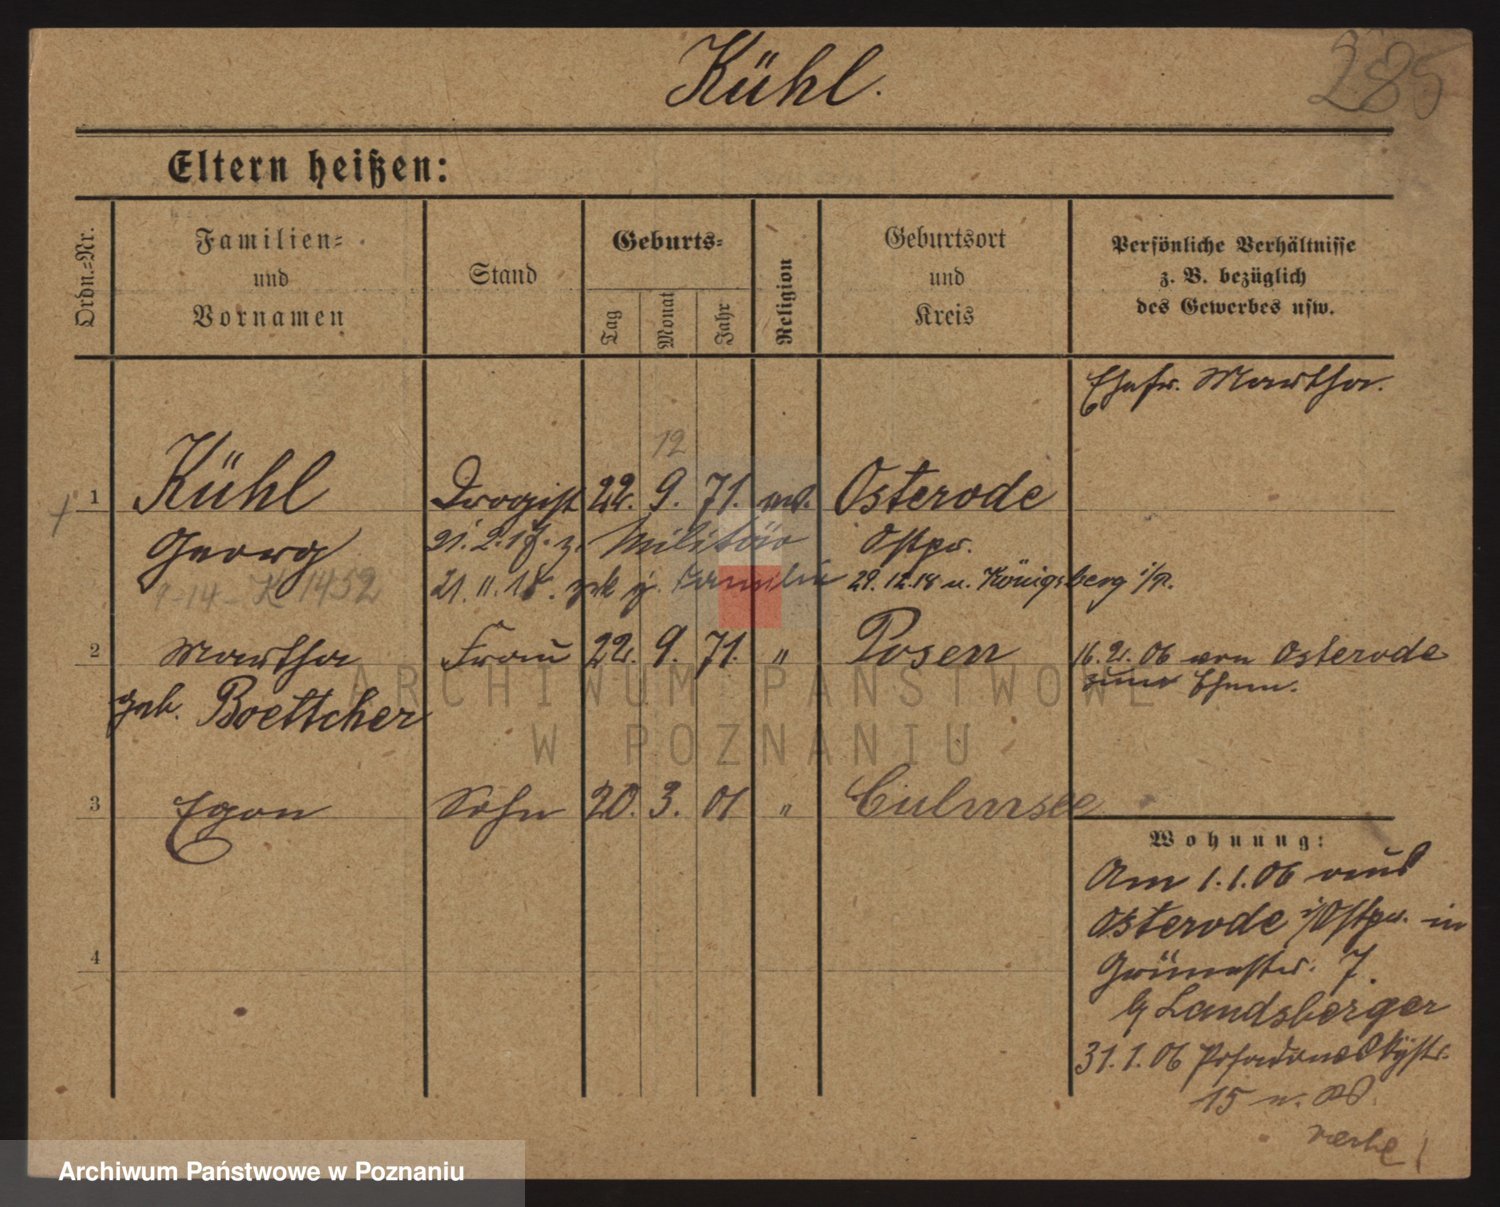 Kühl.
285
Eltern heißen:
Ordn.=Nr.
Familien=
und
Vornamen
Stand
Geburts=
Tag
Monat
Jahr
Religion
Geburtsort
und
Kreis
Persönliche Verhältnisse
z. B. bezüglich
des Gewerbes usw.
Ehefr. Martha.
12
1 Kühl Drogist 22. 9. 71. Osterode
Georg 21.2.17. z. Militär Ostpr.
7-14- K 1452
21.11.18. zrk z. Familie 29.12.18 n. Königsberg i/Pr.
2 Martha Frau 22. 9. 71. " Posen 16.2.06 von Osterode
zum Ehem.
geb. Boettcher
3 Egon Sohn 20. 3. 01 " Culmsee
Wohnung:
Am 1.1.06 aus
Osterode i/Ostpr. in
4
7.
b/ Landsberger
31.1.06
15
ARCHIWUM PAŃSTWOWE
W POZNANIU
Archiwum Państwowe w Poznaniu